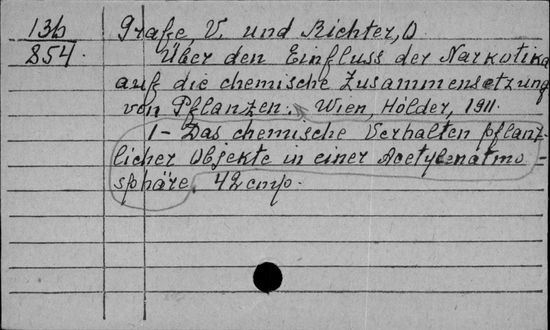 13b
854.
Grafe, V. und Richter, O
Über den Einfluss der Narkotika
auf die chemische Zusammensetzung
von Pflanzen. Wien, Hölder, 1911.
1- Das chemische Verhalten pflanz-
licher Objekte in einer Acetylenatmo-
sphäre. 42 стр.